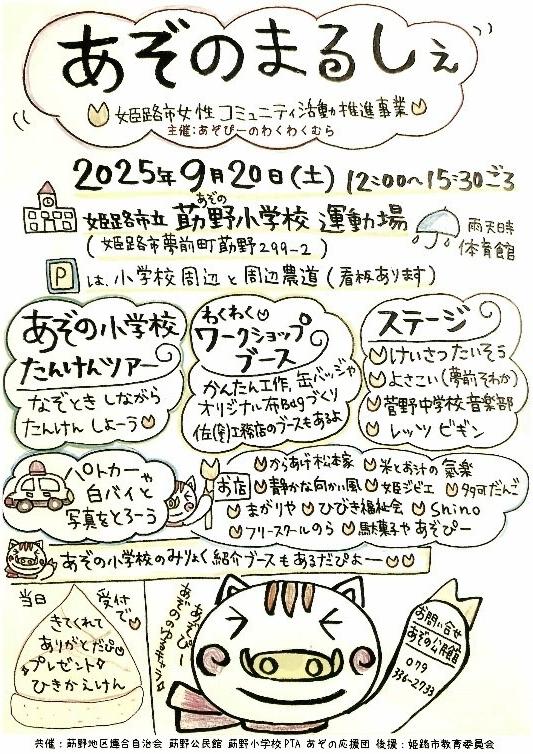 あぞのまるしぇ
姫路市女性コミュニティ活動推進事業
主催:あぞぴーのわくわくむら
2025年9月20日(土) 12:00〜15:30ごろ
あぞの
姫路市立 莇野小学校 運動場
(姫路市夢前町莇野299-2)
雨天時
体育館
P は、小学校周辺と周辺農道(看板あります)
あぞの小学校
たんけんツアー
なぞときしながら
たんけんしよーう
わくわく
ワークショップ
ブース
かんたん工作、缶バッジや
オリジナル布Bagづくり
工務店のブースもあるよ
ステージ
けいさつたいそう
よさこい(夢前そわか)
菅野中学校音楽部
レッツ ビギン
パトカーや
白バイと
写真をとろーう
お店
からあげ松本家 米とお汁の氣楽
静かな向かい風 姫ジビエ タタけだんご
まがりや ひびき福祉会 Shino
フリースクールのら 駄菓子やあぞぴー
あぞの小学校のみりょく紹介ブースもあるだぴよー
当日 受付で
きてくれて
ありがとだぴ
プレゼント
ひきかえけん
あぞぴー
お問い合せ
あぞの公民館
079
336-2733
共催:莇野地区連合自治会 莇野公民館 莇野小学校PTA あぞの応援団 後援:姫路市教育委員会